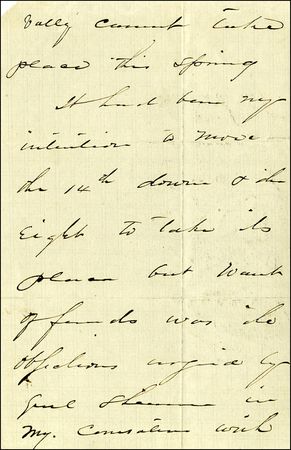 rally cannot take
place this spring
It had been my
intention to move
the 14th down & the
Eight to take its
place but want
of funds was the
objections urged by
Genl Sherman in
my. conversation with